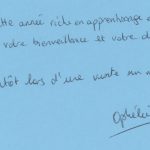 tte année riche en apprentissage e
votre bienveillance et votre d
ntôt lors d'une vente sur n
Ophélie